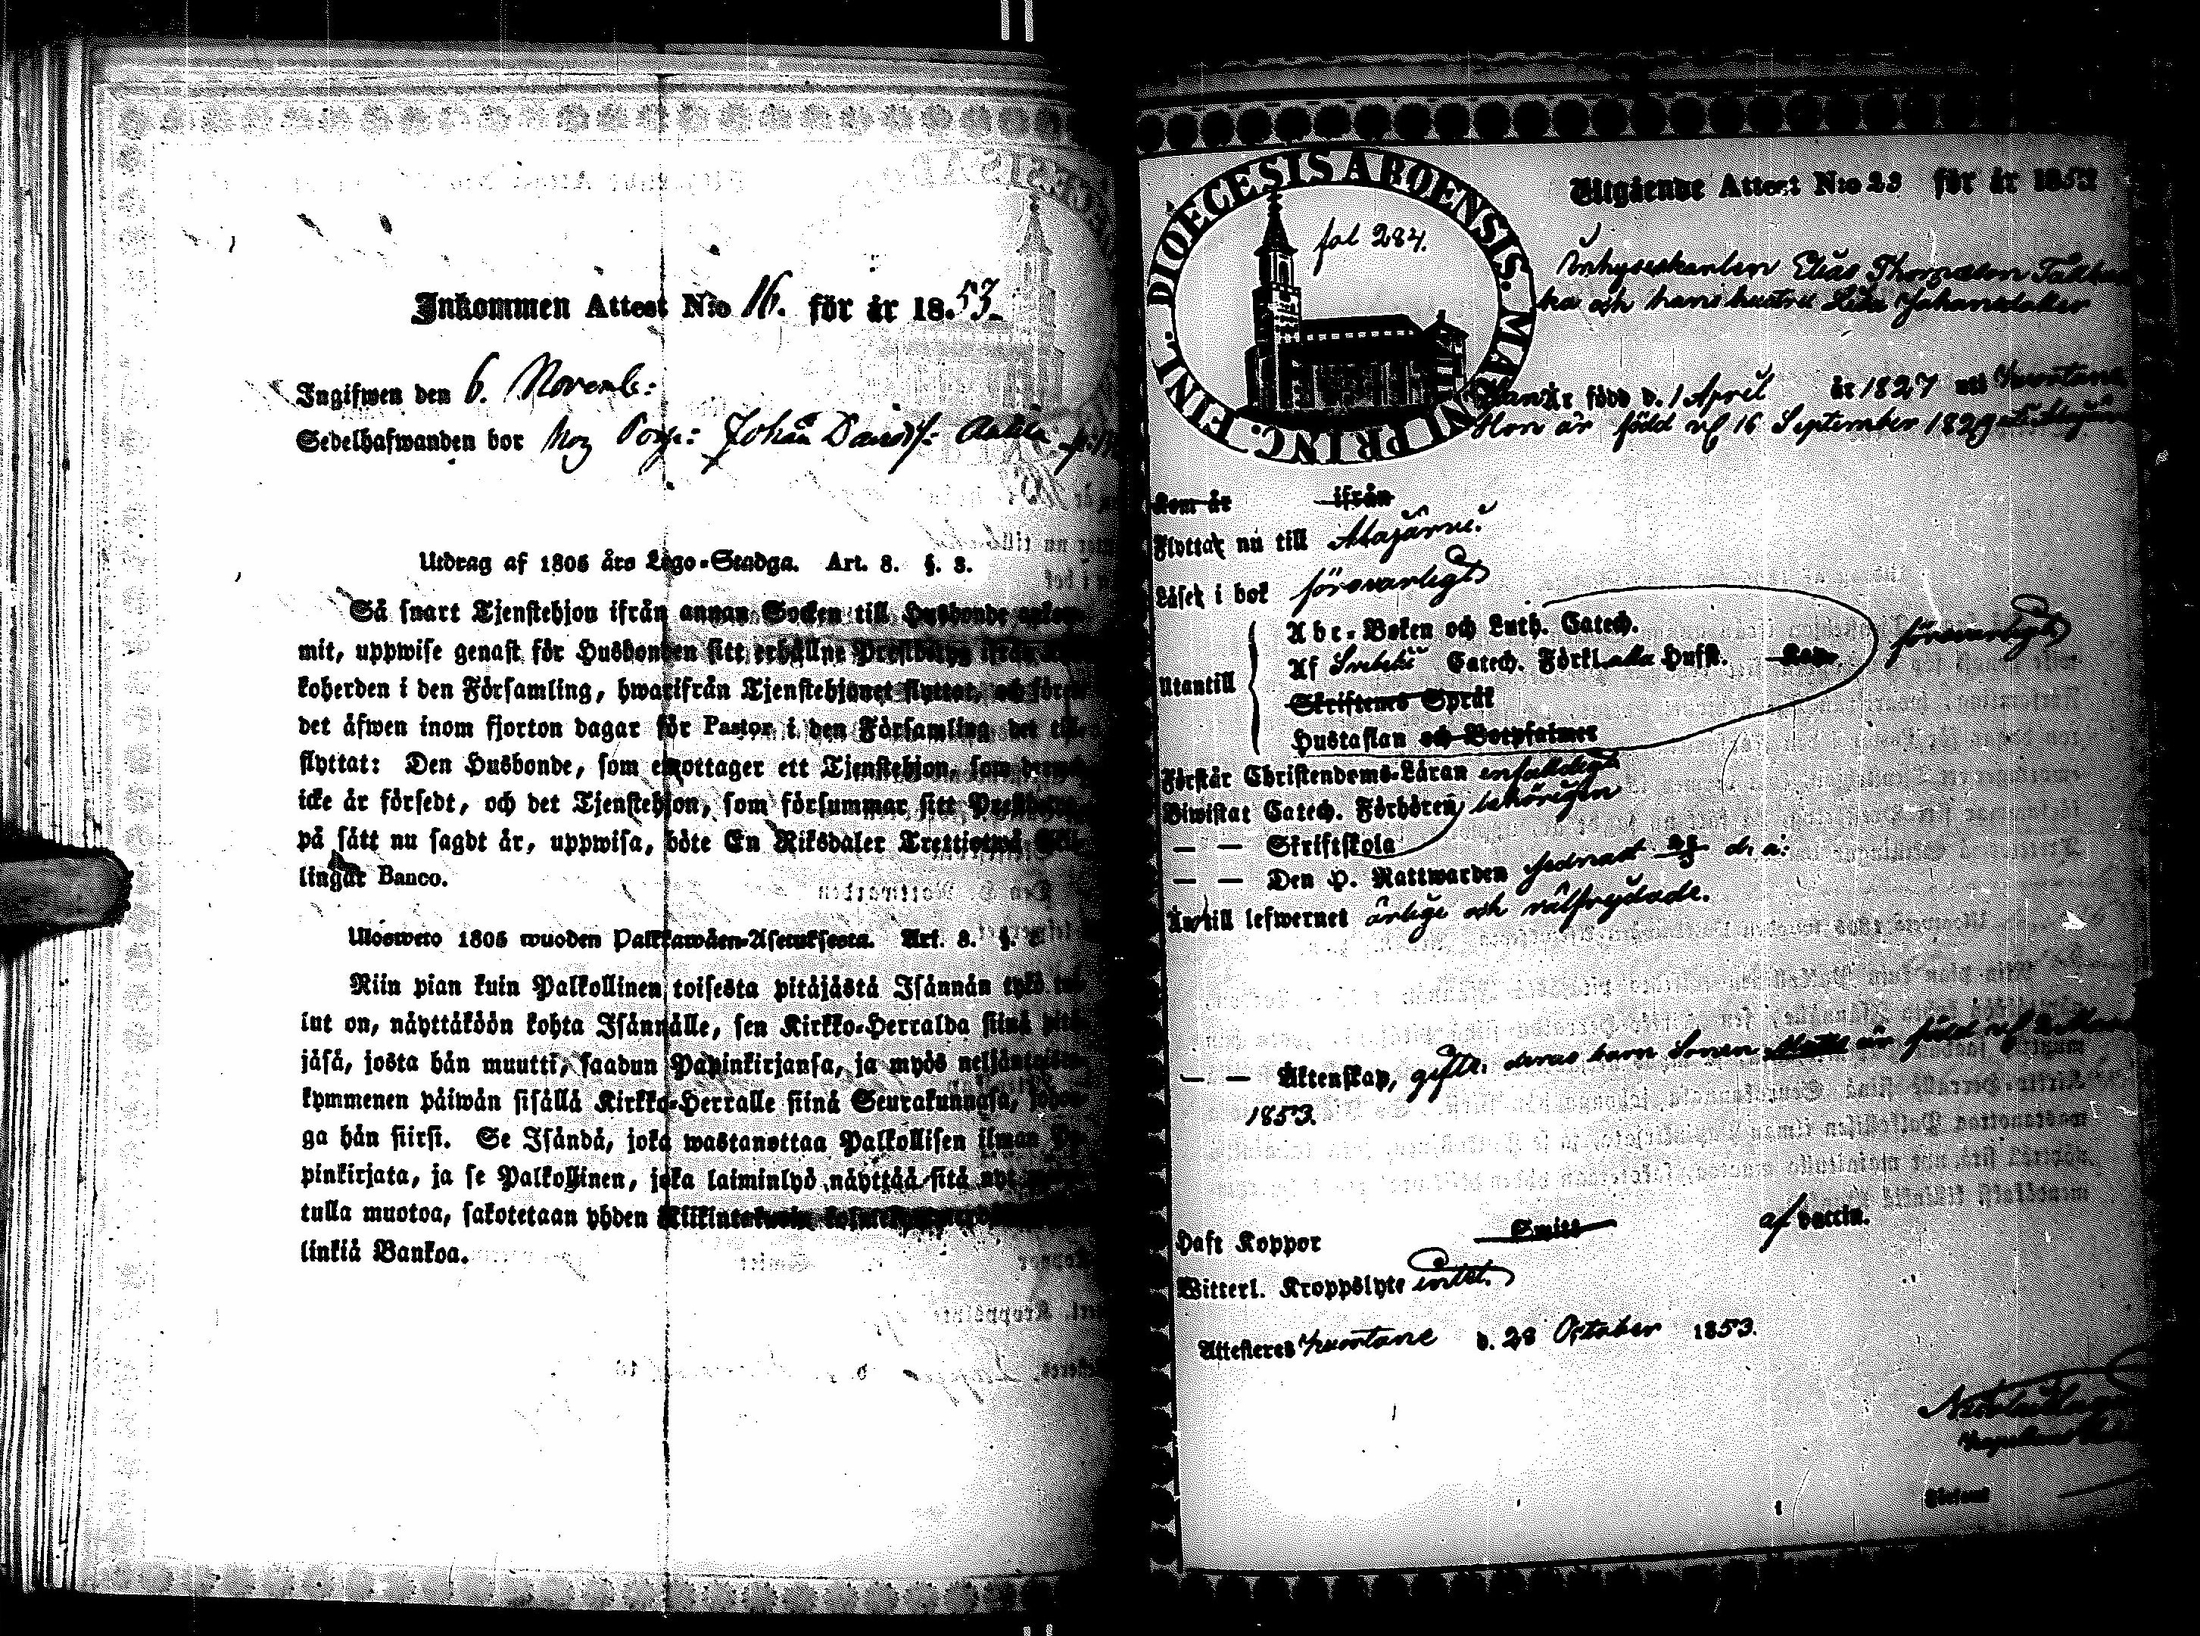 Inkommen Attest N:o 16. för år 1853.
Ingifwen den 6. Novemb:
Sedelhafwanden bor hos Johan Davidss:
Utdrag af 1805 års Lego-Stadga. Art. 8. §. 3.
Så snart Tjenstehjon ifrån annan Socken till Husbonde
mit, uppwise genast för Husbonden sitt erhållne Prestbetyg ifrån
koherden i den Församling, hwarifrån Tjenstehjonet flyttat, och
det äfwen inom fjorton dagar för Pastor i den Församling det
flyttat: Den Husbonde, som emottager ett Tjenstehjon, som
icke är försedt, och det Tjenstehjon, som försummar sitt
på sätt nu sagdt är, uppwisa, böte En Riksdaler Trettiotwå
lingar Banco.
Ulosweto 1805 wuoden Palkkawäen-Asetuksesta. Art. 8. §.
Niin pian kuin Palkollinen toisesta pitäjästä Isännän tykö
lut on, näyttäköön kohta Isännälle, sen Kirkko-Herralda siinä
jäsä, josta hän muutti, saadun Papinkirjansa, ja myös
kymmenen päiwän sisällä Kirkko-Herralle siinä Seurakunnasa,
ga hän siirsi. Se Isändä, joka wastanottaa Palkollisen ilman
pinkirjata, ja se Palkollinen, joka laiminlyö näyttää sitä nyt
tulla muotoa, sakotetaan yhden
linkiä Bankoa.
DIOECESIS ABOENSIS. MAGNI PRINC. FINL.
fol 284.
Utgående Attest N:o 23 för år 1853
Inhyseskarlen Elias Thomasson
ka och hans hustru Lisa Johansdotter
Han är född d. 1 April år 1827 uti Kuortane
Hon är född d 16 September 1829
Kom år ifrån
Flyttar nu till Alajärvi.
Läser i bok försvarligt
Utantill
Abc-Boken och Luth. Catech.
Af Svebelii Catech. Förkl. alla Hufst. Kap.
Skriftens Språk
Hustaflan och Botpsalmer
försvarligt
Förstår Christendoms-Läran enfaldigt
Biwistat Catech. Förhören behörigen
— — Skriftskola
— — Den H. Nattwarden sednast d. å:
Än till lefwernet ärlige och välfrejdade.
— — Äktenskap, gifte. deras barn Sonen är född
1853.
Haft Koppor Smitt af vaccin.
Witterl. Kroppslyte intet.
Attesteres Kuortane d. 28 October 1853.